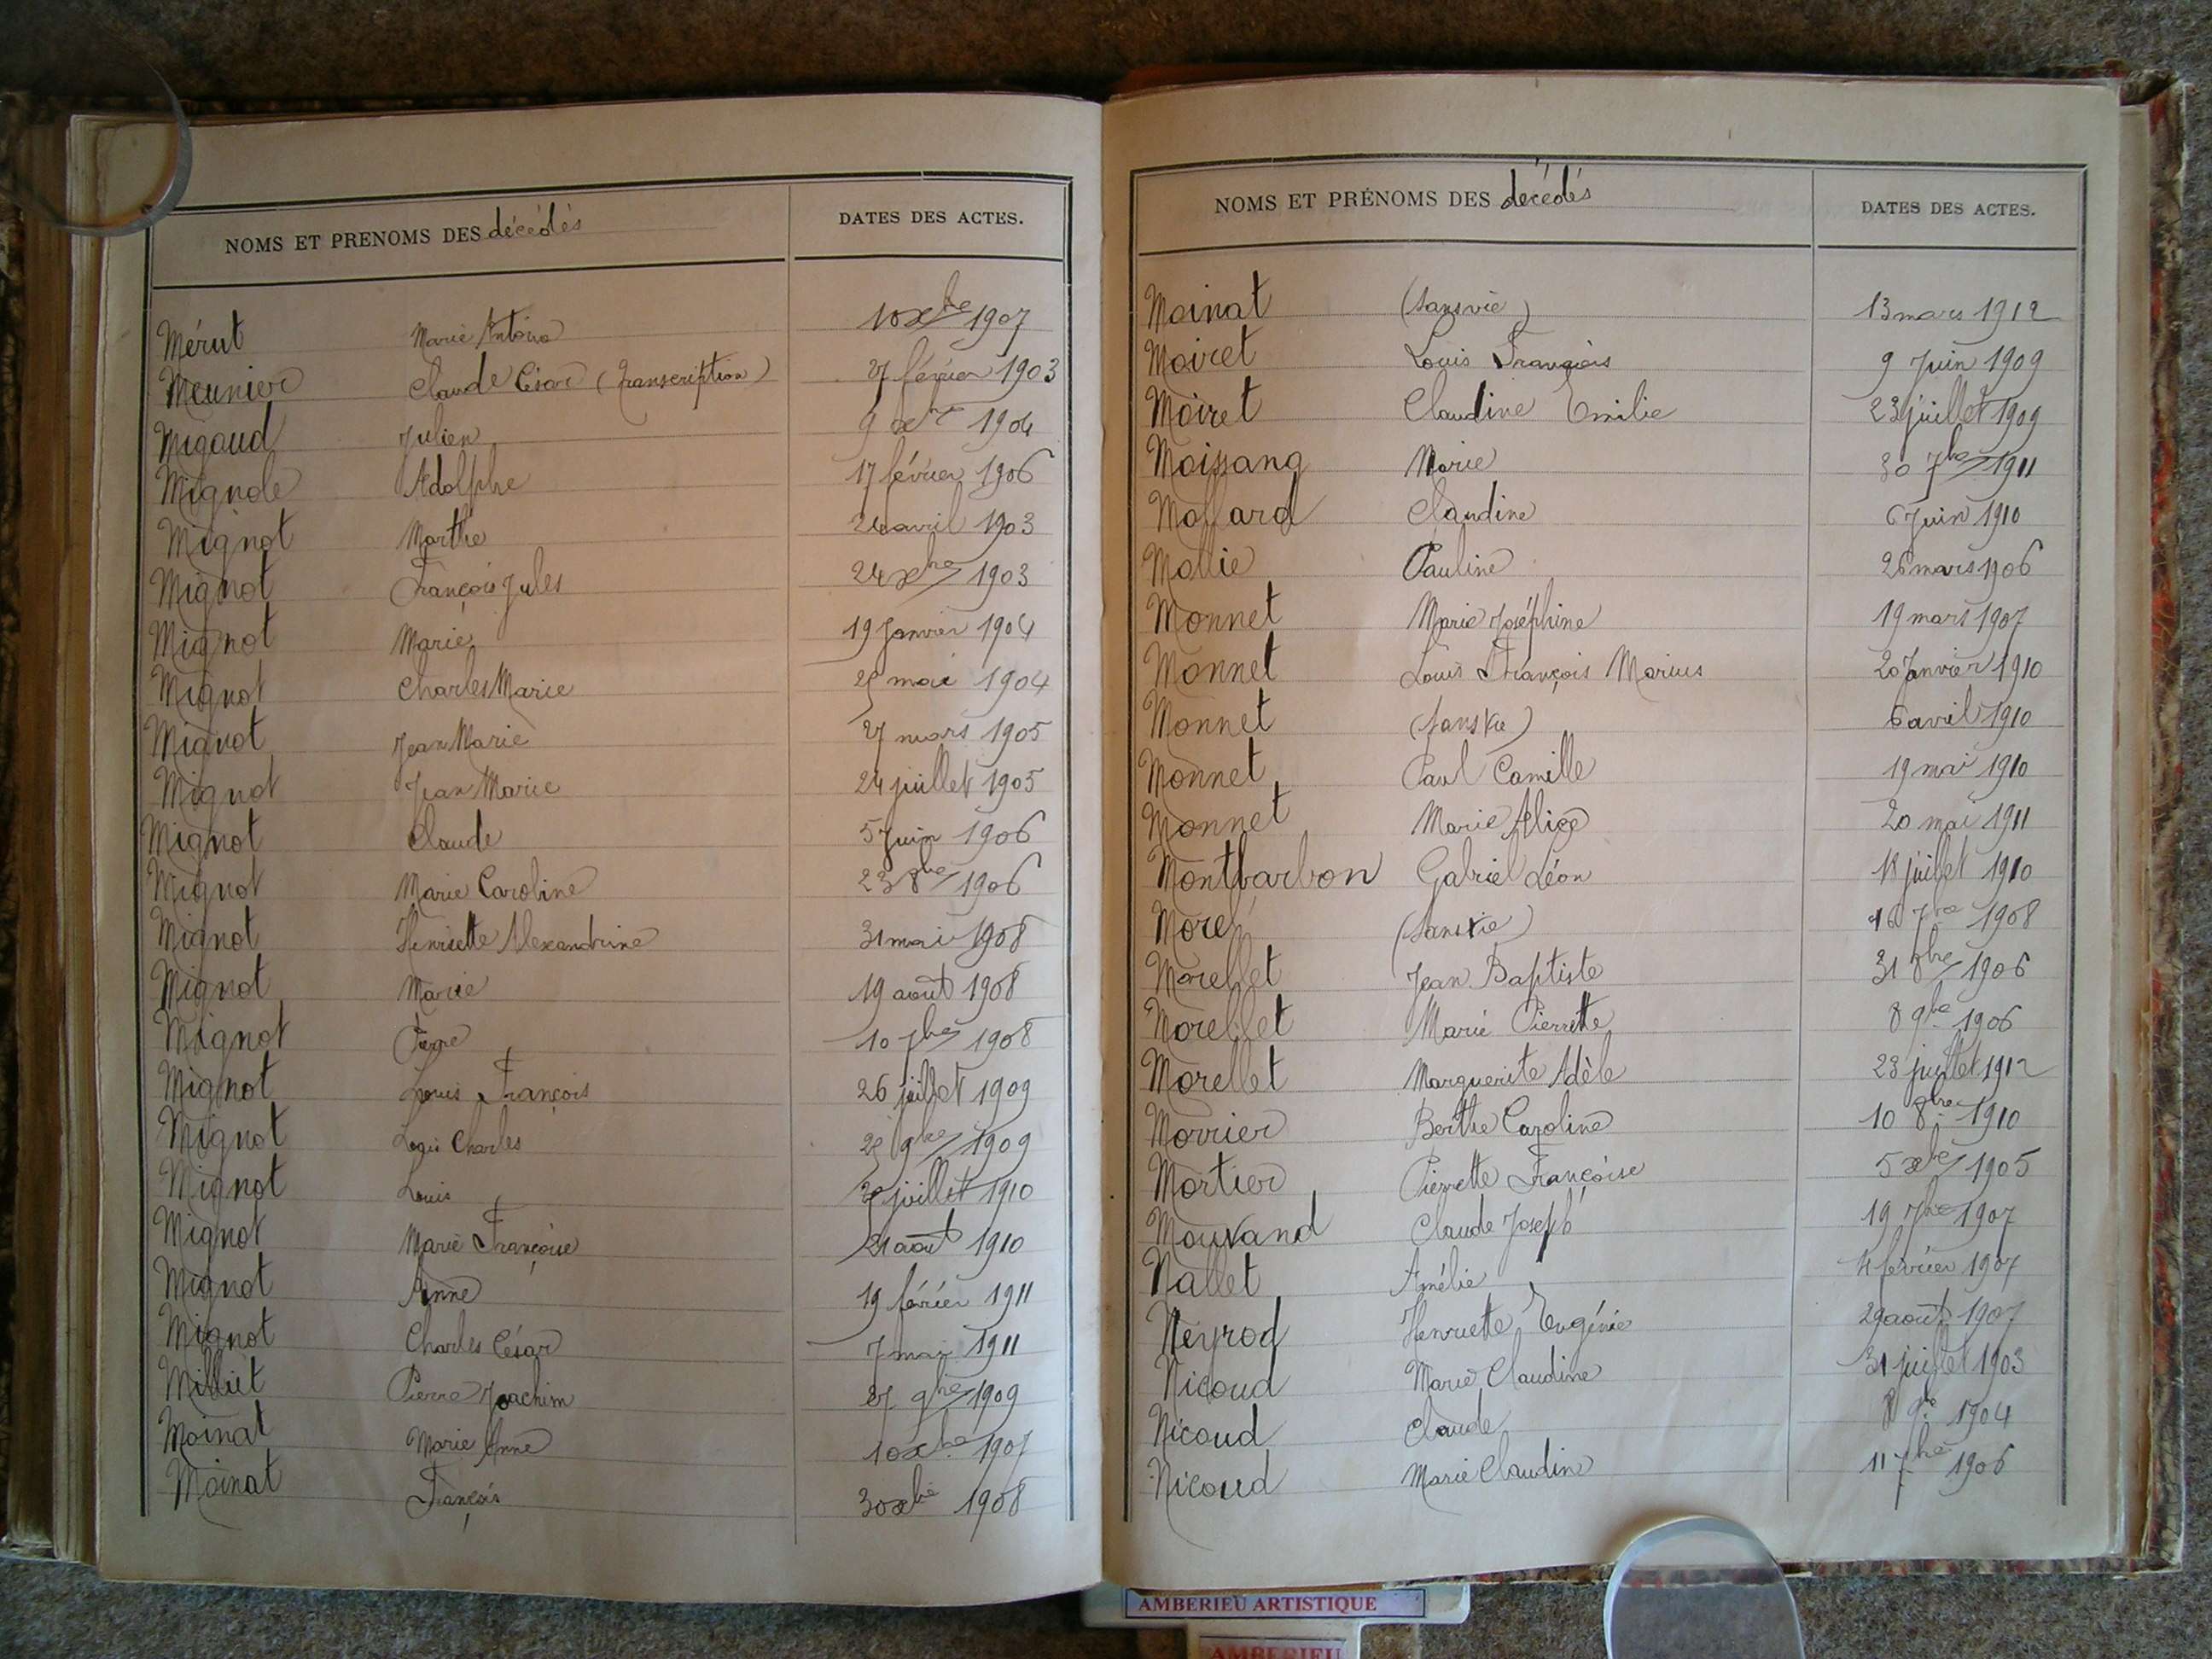 NOMS ET PRENOMS DES décédés DATES DES ACTES.
Mérut Marie Antoine 10 xbre 1907
Meunier Claude César (transcription) 27 février 1903
Migaud Julien 9 xbre 1904
Mignole Adolphe 17 février 1906
Mignot Marthe 24 avril 1903
Mignot François Jules 24 xbre 1903
Mignot Marie 19 Janvier 1904
Mignot Charles Marie 25 mai 1904
Mignot Jean Marie 27 mars 1905
Mignot Jean Marie 24 juillet 1905
Mignot Claude 5 Juin 1906
Mignot Marie Caroline 23 8bre 1906
Mignot Henriette Alexandrine 31 mai 1908
Mignot Marie 19 août 1908
Mignot Pierre 10 7bre 1908
Mignot Louis François 26 juillet 1909
Mignot Louis Charles 25 9bre 1909
Mignot Louis juillet 1910
Mignot Marie Françoise 21 août 1910
Mignot Anne 19 février 1911
Mignot Charles César 7 mai 1911
Milliet Pierre Joachim 27 9bre 1909
Moinat Marie Anne 10 xbre 1907
Moinat François 30 xbre 1908
NOMS ET PRÉNOMS DES décédés DATES DES ACTES.
Moinat (sans vie) 13 mars 1912
Moiret Louis François 9 Juin 1909
Moiret Claudine Emilie 23 juillet 1909
Moissang Marie 30 7bre 1911
Mollard Claudine 6 Juin 1910
Mollie Pauline 26 mars 1906
Monnet Marie Joséphine 19 mars 1907
Monnet Louis François Marius 20 Janvier 1910
Monnet (sans vie) 6 avril 1910
Monnet Paul Camille 19 mai 1910
Monnet Marie Alice 20 mai 1911
Montbarbon Gabriel Léon 18 juillet 1910
Morel (sans vie) 16 7bre 1908
Morellet Jean Baptiste 31 8bre 1906
Morellet Marie Pierrette 8 9bre 1906
Morellet Marguerite Adèle 23 juillet 1912
Morrier Berthe Caroline 10 8bre 1910
Mortier Pierrette Françoise 5 xbre 1905
Mouvand Claude Joseph 19 7bre 1907
Nallet Amélie 4 février 1907
Neyrod Henriette Eugénie 29 août 1907
Nicoud Marie Claudine 31 juillet 1903
Nicoud Claude 1904
Nicoud Marie Claudine 11 7bre 1906
AMBERIEU ARTISTIQUE
AMBERIEU